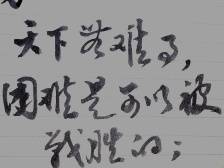 天下苦难了，
困难是可以被
战胜的；